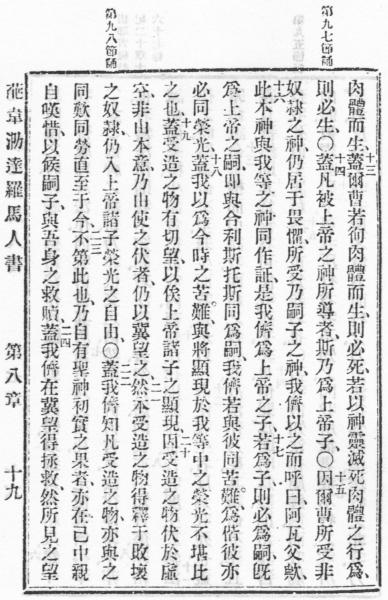 第九七節誦
第九八節誦
肉體而生、十三蓋爾曹若徇肉體而生、則必死、若以神靈滅死肉體之行爲、
則必生、〇十四蓋凡被上帝之神所導者、斯乃爲上帝子、〇十五因爾曹所受非
奴隸之神仍居于畏懼、所受乃嗣子之神、我儕以之而呼曰、阿瓦父歟、
十六此本神與我等之神同作証、是我儕爲上帝之子、十七若爲子、則必爲嗣、旣
爲上帝之嗣、即與合利斯托斯同爲嗣、我儕若與彼同苦難、爲偕彼亦
必同榮光、十八蓋我以爲今時之苦難、與將顯現於我等中之榮光不堪比
之也、十九蓋受造之物有切望、以俟上帝諸子之顯現、二十因受造之物伏於虛
空、非由本意、乃由使之伏者、仍以冀望之、二一然本受造之物得釋于敗壞
之奴隸、仍入上帝諸子榮光之自由、〇二二蓋我儕知凡受造之物、亦與之
同歎同勞、直至于今、二三不第此也、乃自有聖神初實之果者、亦在己中親
自嘆惜、以候嗣子、與吾身之救贖、二四蓋我儕在冀望得拯救、然所見之望
葩韋泐達羅馬人書 第八章 十九